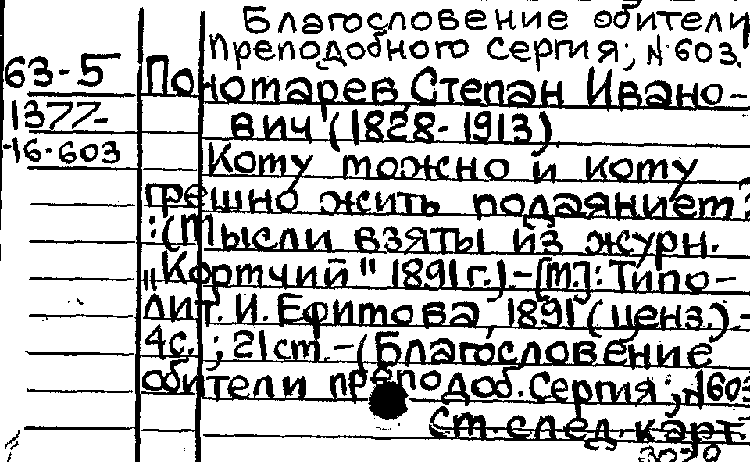 Благословение обители
преподобного Сергия; N 603.
63-5 Пономарев, Степан Ивано-
1377- вич (1828-1913)
-16-603 Кому можно и кому
грешно жить подаянием?
: (Мысли взяты из журн.
„Кормчий" 1891 г.).-[М.]: Типо-
лит. И. Ефимова, 1891 (ценз.).-
4с.; 21см.-(Благословение
обители преподоб. Сергия; N603
См. след. карт.